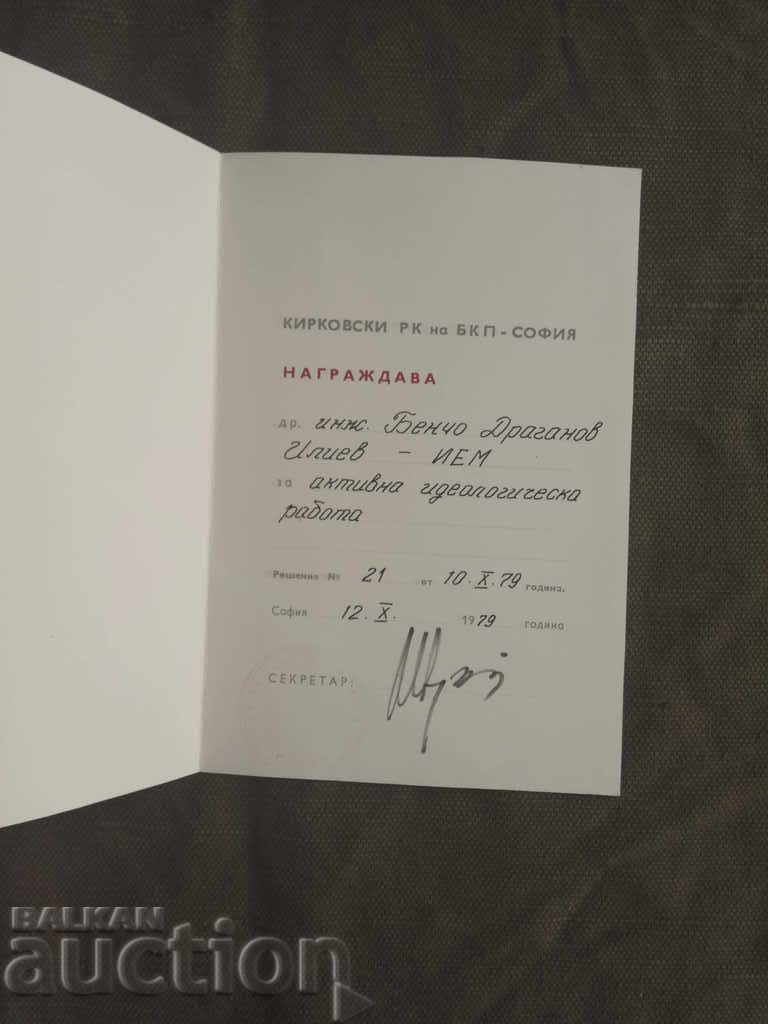 КИРКОВСКИ РК на БКП - СОФИЯ
НАГРАЖДАВА
др. инж. Бенчо Драганов
Илиев - ИЕМ
за активна идеологическа
работа
Решение № 21 от 10.X.79 година.
София 12.X. 1979 година
СЕКРЕТАР:
BALKAN
auction